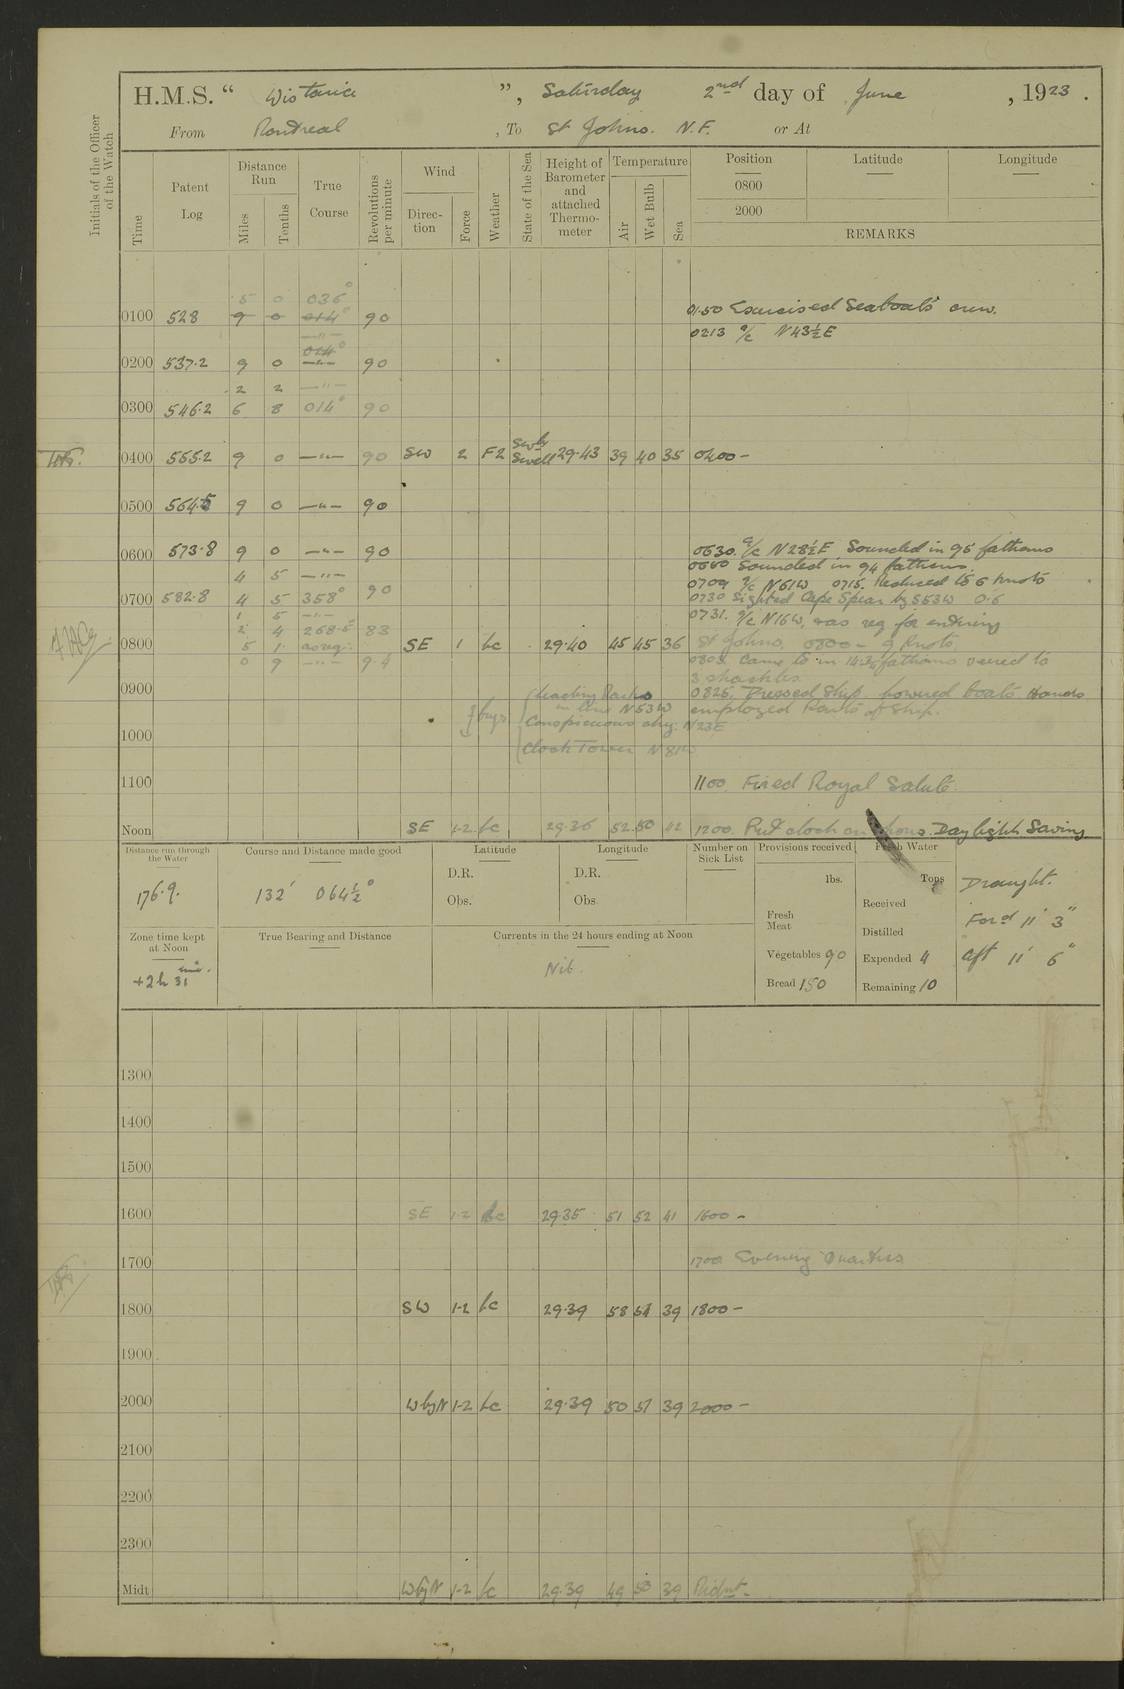 H.M.S. " Wistaria ", Saturday 2nd day of June, 1923.
From Montreal, To St Johns. N.F. or At
Initials of the Officer of the Watch
Time
Patent Log
Distance Run
Miles
Tenths
True Course
Revolutions per minute
Wind
Direction
Force
Weather
State of the Sea
Height of Barometer and attached Thermometer
Temperature
Air
Wet Bulb
Sea
Position Latitude Longitude
0800
2000
REMARKS
5 0 036°
0100 528 9 0 014° 90 0150 Exercised Seaboats crew.
—"— 0213 a/c N43½E
014°
0200 537.2 9 0 —"— 90
2 2 —"—
0300 546.2 6 8 014° 90
0400 555.2 9 0 —"— 90 SW 2 F2 SWly Swell 29.43 39 40 35 0400 —
0500 564.5 9 0 —"— 90
0600 573.8 9 0 —"— 90 0630. a/c N28½E Sounded in 95 fathoms
4 5 —"— Sounded in 94 fathoms.
0709 a/c N61W 0715. Reduced to 6 knots
0700 582.8 4 5 358° 90 0730 Sighted Cape Spear by S53W 0.6
1 5 —"— 0731. a/c N16W, & as req for entering
2 4 268.5° 83
0800 5 1 as req. SE 1 bc 29.40 45 45 36 St Johns. 0800 — 9 knots.
0 9 —"— 9.4 Came to in 14¾ fathoms veered to
3 shackles
0900 Leading Marks in line N53W 0825. Dressed Ship. lowered boats Hands
employed Parts of Ship.
Conspicuous chy. N23E
1000 Clock Tower N81W
1100 1100. Fired Royal Salute.
Noon SE 1-2 bc 29.36 52 50 42 1200. Put clock on Daylight Saving
Distance run through the Water
176.9.
Course and Distance made good
132' 064½°
Latitude
D.R.
Obs.
Longitude
D.R.
Obs.
Number on Sick List
Provisions received
lbs.
Fresh Meat
Vegetables 90
Bread 150
Fresh Water
Tons
Received
Distilled
Expended 4
Remaining 10
Draught.
Ford 11' 3"
aft 11' 6"
Zone time kept at Noon
+2h 31 min.
True Bearing and Distance
Currents in the 24 hours ending at Noon
Nil.
1300
1400
1500
1600 SE 1-2 bc 29.35 51 52 41 1600 —
1700 1700 Evening Quarters
1800 SW 1-2 bc 29.39 58 54 39 1800 —
1900
2000 WbyN 1-2 bc 29.39 50 51 39 2000 —
2100
2200
2300
Midt WbyN 1-2 bc 29.39 49 50 39 Midnt —